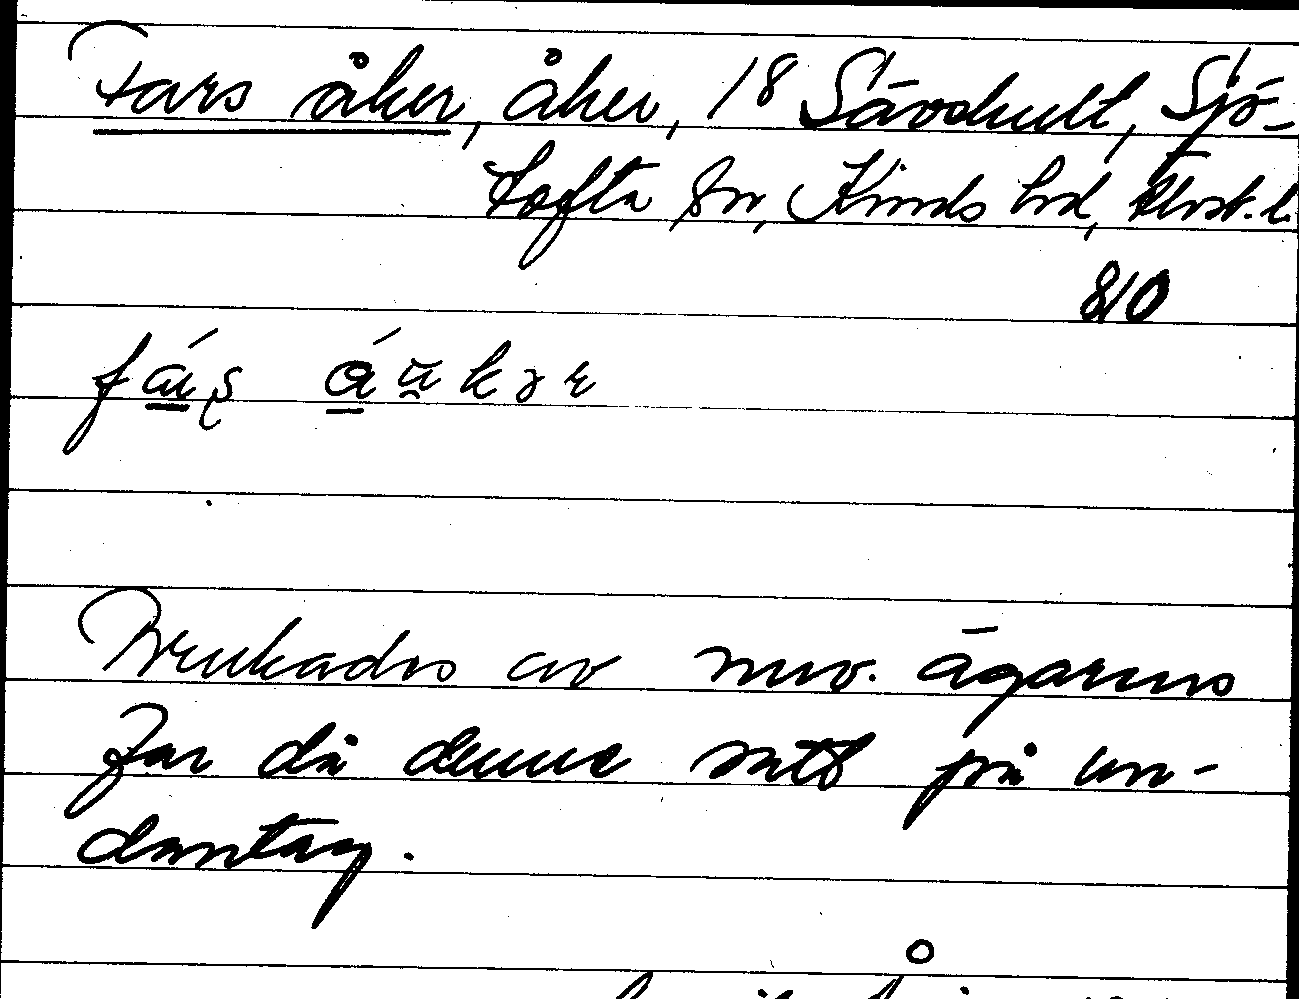 Fars åker, åker, 18 Sävshult, Sjö-
tofta sn, Kinds hd, Älvsb. l.
810
Brukades av nuv. ägarens
far då denne satt på un-
dantag.